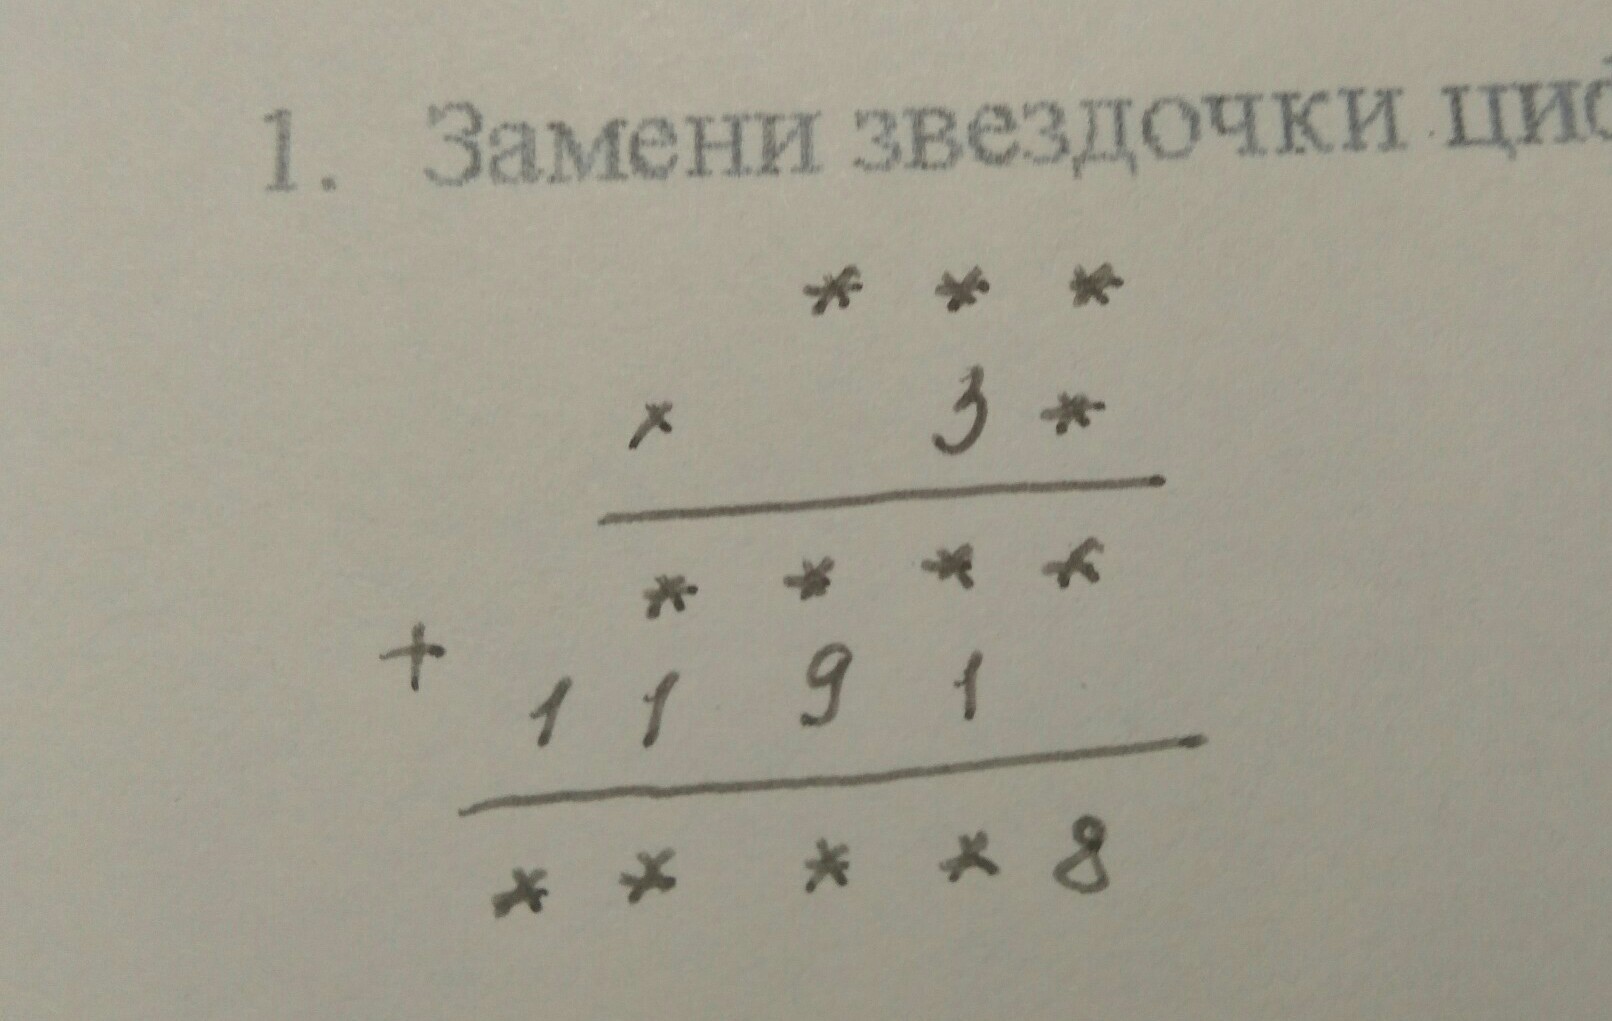 1. Замени звездочки
* * *
× 3 *
* * * *
+ 1 1 9 1
* * * * 8